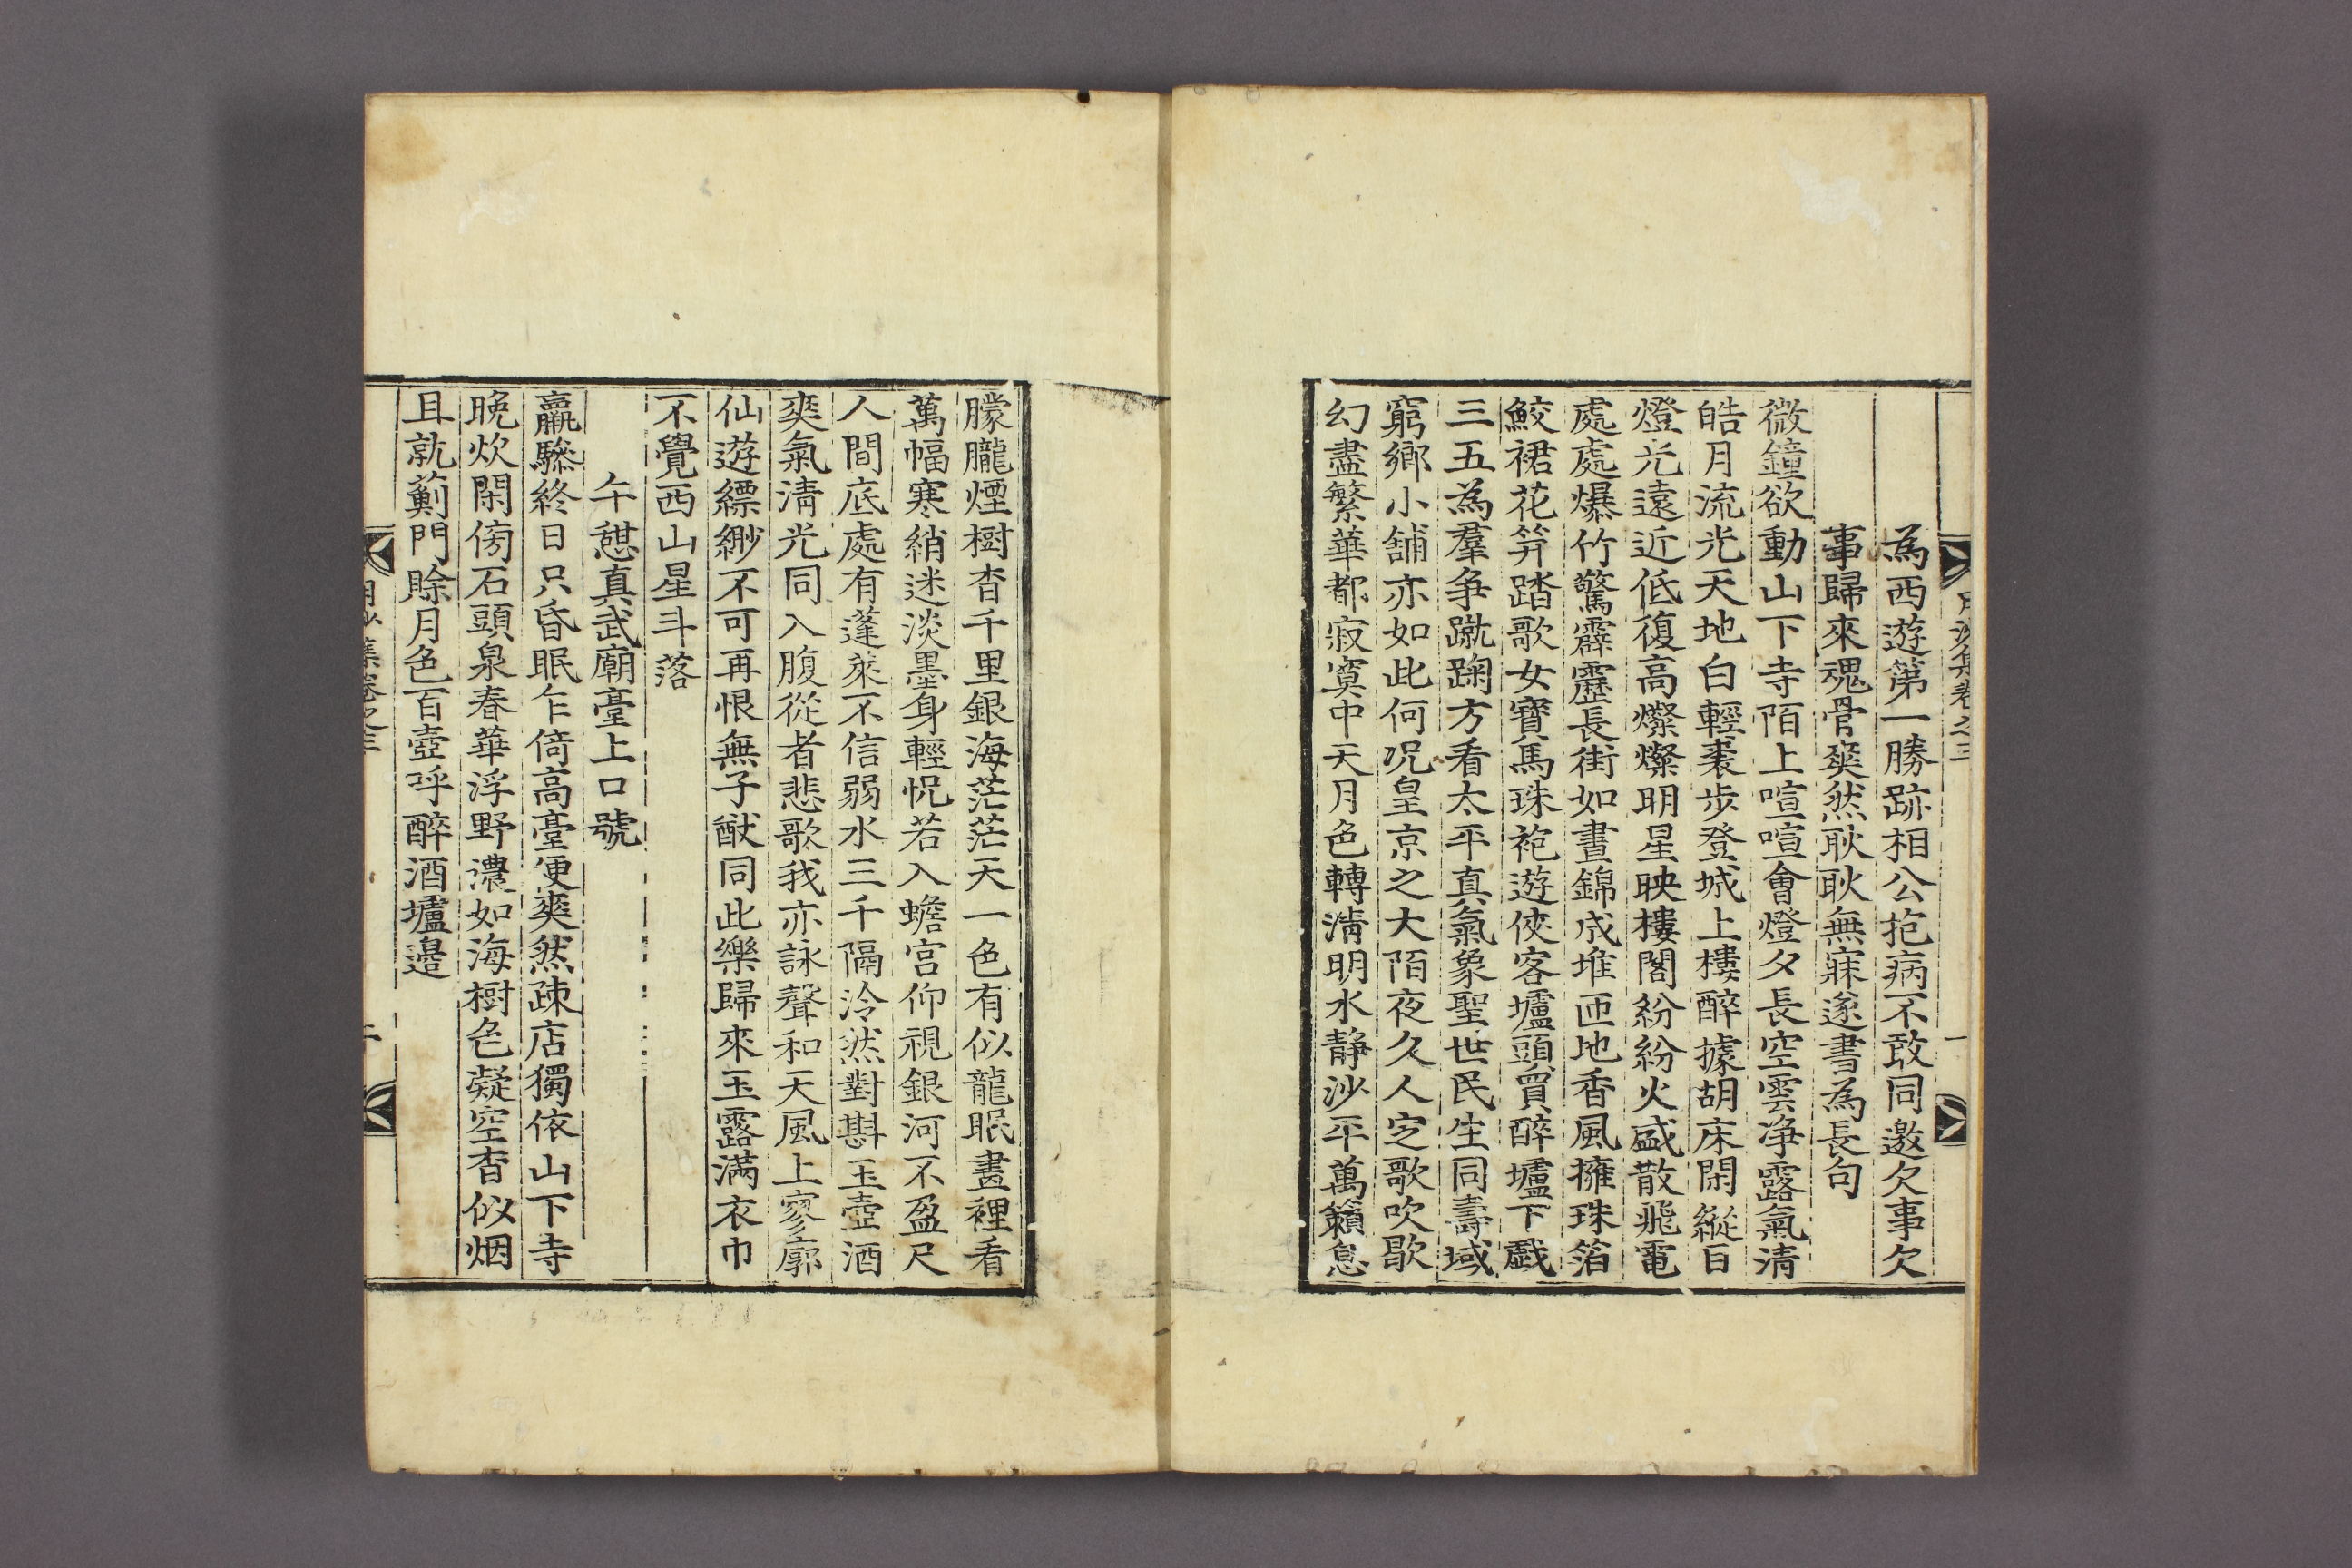 月沙集卷之三
一
為西遊第一勝跡相公抱病不敢同邀欠事欠
事歸來魂骨爽然耿耿無寐遂書為長句
微鐘欲動山下寺陌上喧喧會燈夕長空雲净露氣清
皓月流光天地白輕裘步登城上樓醉據胡床閑縱目
燈光遠近低復高燦燦明星映樓閣紛紛火盛散飛電
處處爆竹驚霹靂長街如晝錦成堆匝地香風擁珠箔
鮫裙花筓踏歌女寶馬珠袍遊俠客壚頭買醉壚下戱
三五為羣争蹴踘方看太平真氣象聖世民生同壽域
窮鄉小舖亦如此何况皇京之大陌夜久人定歌吹歇
幻盡繁華都寂寞中天月色轉淸明水静沙平萬籟息
朦朧煙樹杳千里銀海茫茫天一色有似龍眠畫裡看
萬幅寒綃迷淡墨身輕怳若入蟾宮仰視銀河不盈尺
人間底處有蓬萊不信弱水三千隔泠然對斟玉壺酒
爽氣清光同入腹從者悲歌我亦詠聲和天風上寥廓
仙遊縹緲不可再恨無子猷同此樂歸來玉露滿衣巾
不覺西山星斗落
午憩真武廟臺上口號
羸驂終日只昏眠乍倚高臺便爽然疎店獨依山下寺
晚炊閑傍石頭泉春華浮野濃如海樹色凝空杳似烟
且就薊門賒月色百壺呼醉酒壚邊
月沙集卷之三
二